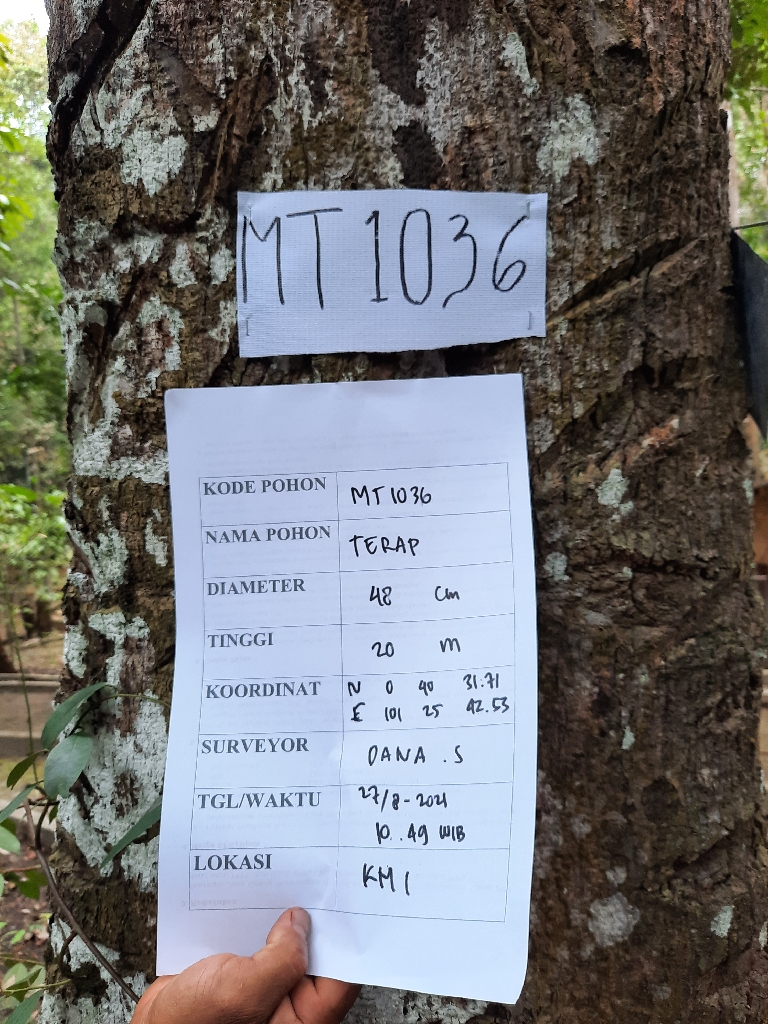 MT 1036
KODE POHON MT1036
NAMA POHON TERAP
DIAMETER 48 cm
TINGGI 20 m
KOORDINAT N 0 40 31.71
E 101 25 42.53
SURVEYOR DANA .S
TGL/WAKTU 27/8-2021
10..49 WIB
LOKASI KM 1